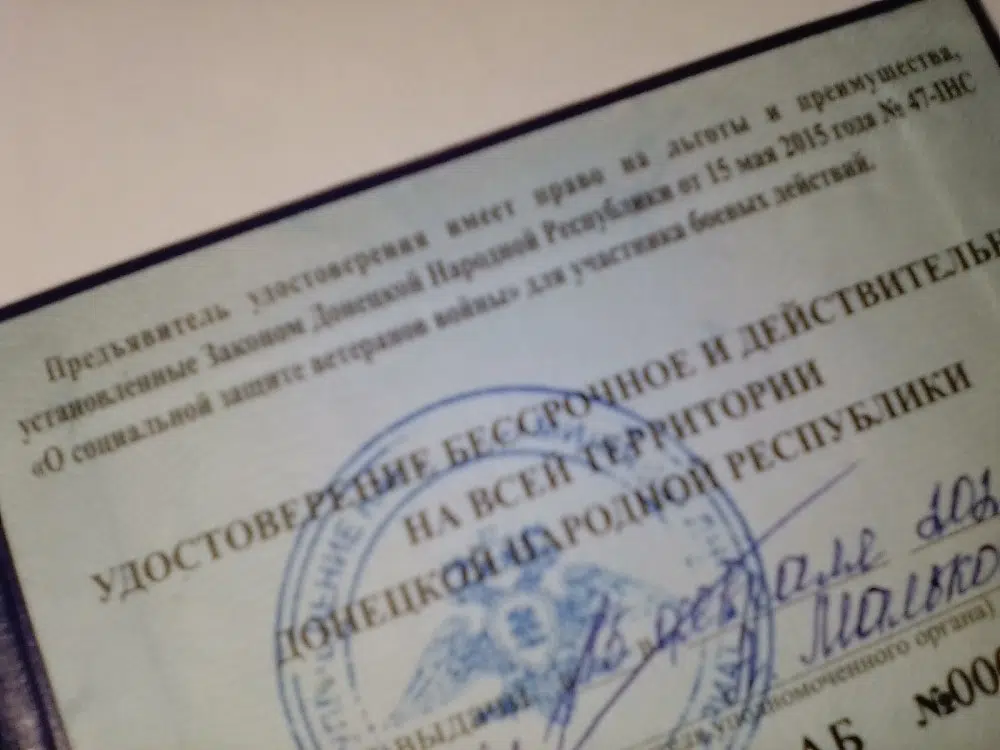 Предъявитель удостоверения имеет право на льготы и преимущества,
установленные Законом Донецкой Народной Республики от 15 мая 2015 года № 47-IНС
«О социальной защите ветеранов войны» для участника боевых действий.
УДОСТОВЕРЕНИЕ БЕССРОЧНОЕ И ДЕЙСТВИТЕЛЬН
НА ВСЕЙ ТЕРРИТОРИИ
ДОНЕЦКОЙ НАРОДНОЙ РЕСПУБЛИКИ
февраля 202
Малько
уполномоченного органа)
АБ №00